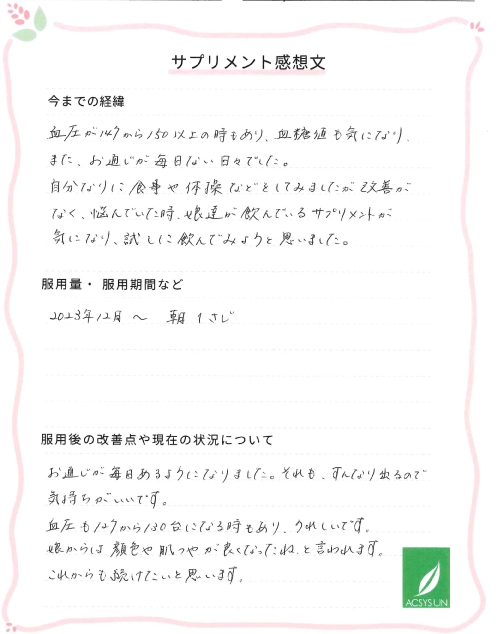 サプリメント感想文
今までの経緯
血圧が147から150以上の時もあり、血糖値も気になり、
また、お通じが毎日ない日々でした。
自分なりに食事や体操などをしてみましたが改善が
なく、悩んでいた時、娘達が飲んでいるサプリメントが
気になり、試しに飲んでみようと思いました。
服用量・ 服用期間など
2023年12月 〜 朝 1さじ
服用後の改善点や現在の状況について
お通じが毎日あるようになりました。それも、すんなり出るので
気持ちがいいです。
血圧も127から130台になる時もあり、うれしいです。
娘からは顔色や肌つやが良くなったね、と言われます。
これからも続けたいと思います。
ACSYSUN